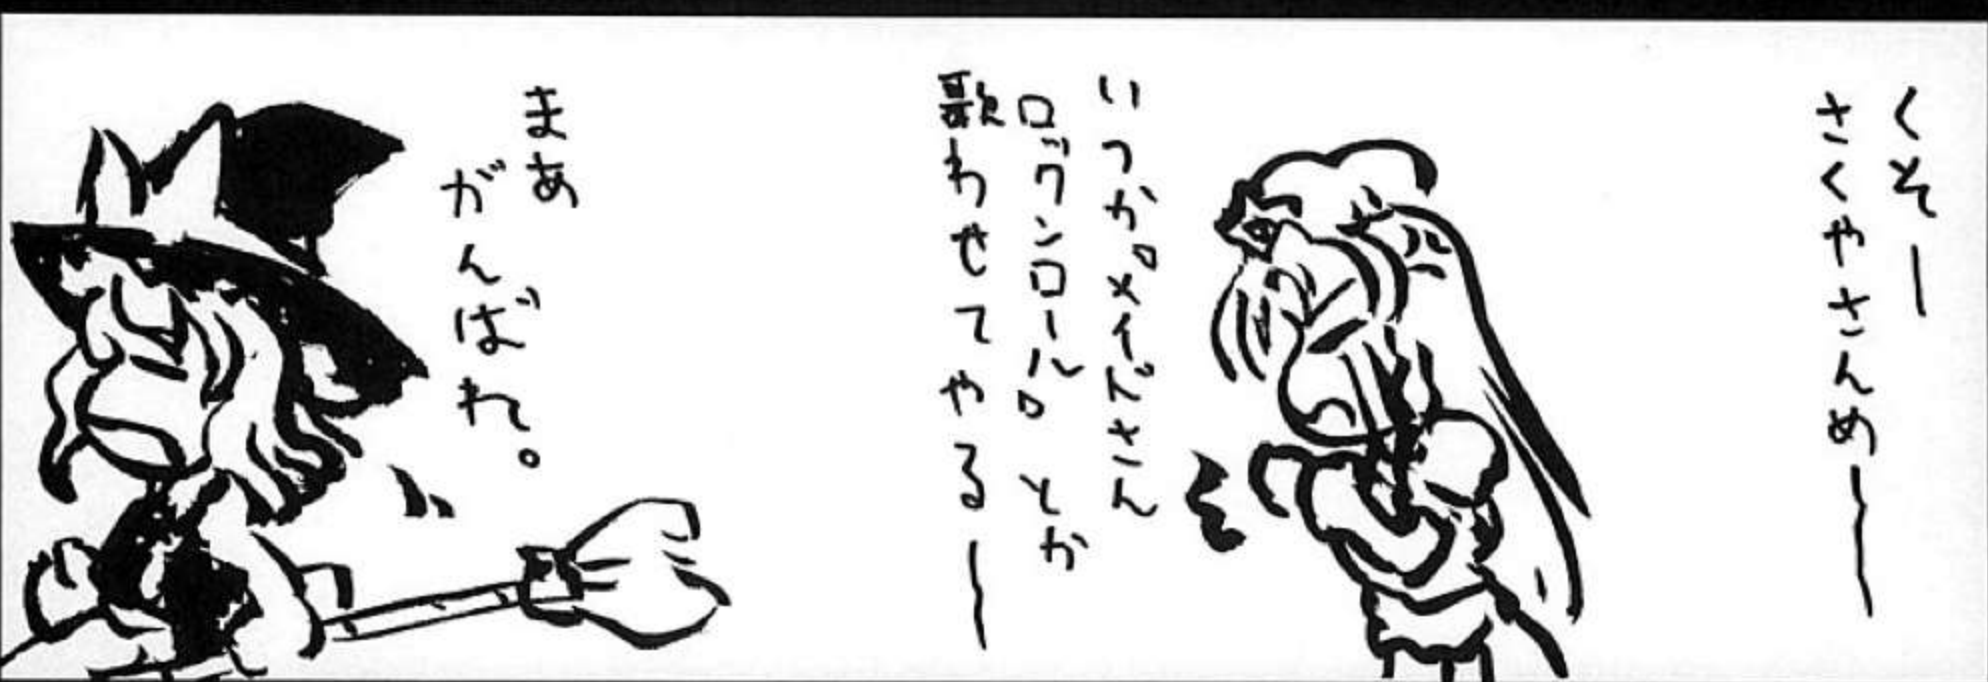 くそー
さくやさんめ〜
いつか『メイドさん
ロックンロール』とか
歌わせてやる〜
まあ
がんばれ。